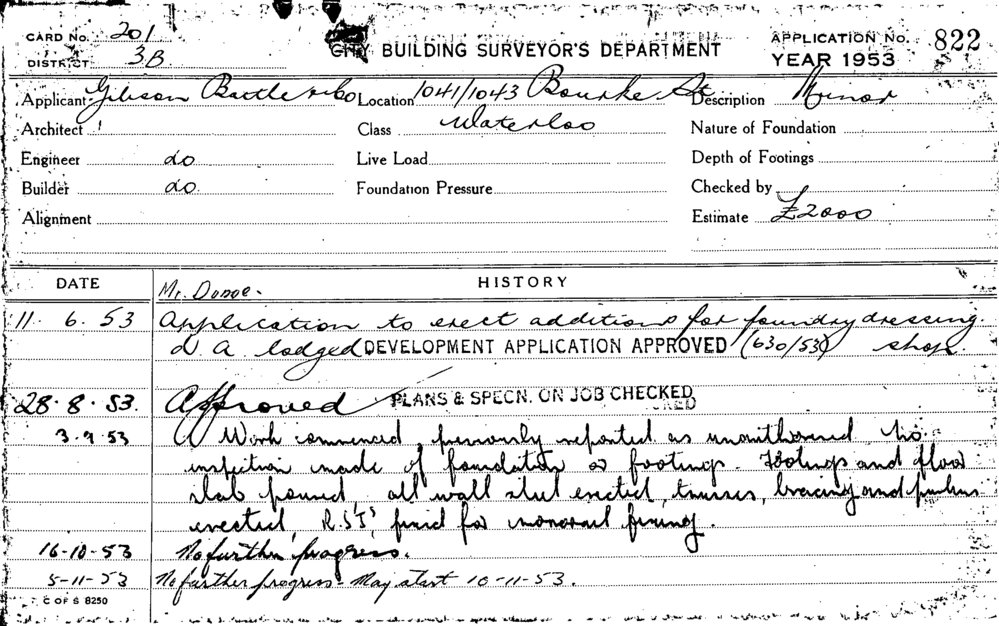 CARD No. 201
DISTRICT 3B
CITY BUILDING SURVEYOR'S DEPARTMENT
APPLICATION No. 822
YEAR 1953
Applicant Gibson Battle & Co Location 1041/1043 Bourke St Description Minor
Architect Class Waterloo Nature of Foundation
Engineer do Live Load Depth of Footings
Builder do Foundation Pressure Checked by
Alignment Estimate £2000
DATE HISTORY
Mr. Donoe.
11. 6. 53 Application to erect additions for foundry dressing
D.A lodged DEVELOPMENT APPLICATION APPROVED (630/53) shop.
28. 8. 53. Approved PLANS & SPECN. ON JOB CHECKED
3.9.53 Work commenced, previously reported as unauthorised no
inspection made of foundations or footings. Footings and floor
slab poured, all wall steel erected, trusses, bracing and purlins
erected, R.S.J's fixed for monorail fixing.
16-10-53 No further progress.
5-11-53 No further progress. May start 10-11-53.
C OF S 8250